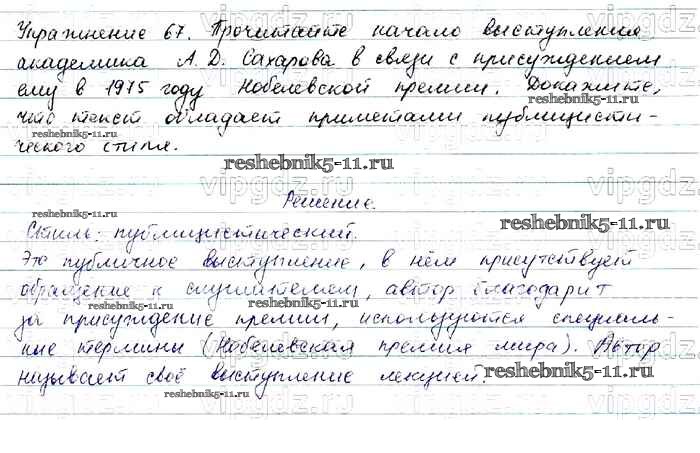 Упражнение 67. Прочитайте начало выступления
академика А. Д. Сахарова в связи с присуждением
ему в 1975 году Нобелевской премии. Докажите,
что текст обладает приметами публицисти-
ческого стиля.
Решение.
Стиль: публицистический.
Это публичное выступление, в нём присутствует
обращение к слушателям, автор благодарит
за присуждение премии, используются специаль-
ные термины (Нобелевская премия мира). Автор
называет своё выступление лекцией.
reshebnik5-11.ru
reshebnik5-11.ru
reshebnik5-11.ru
reshebnik5-11.ru
reshebnik5-11.ru
reshebnik5-11.ru
reshebnik5-11.ru
reshebnik5-11.ru
reshebnik5-11.ru
vipgdz.ru